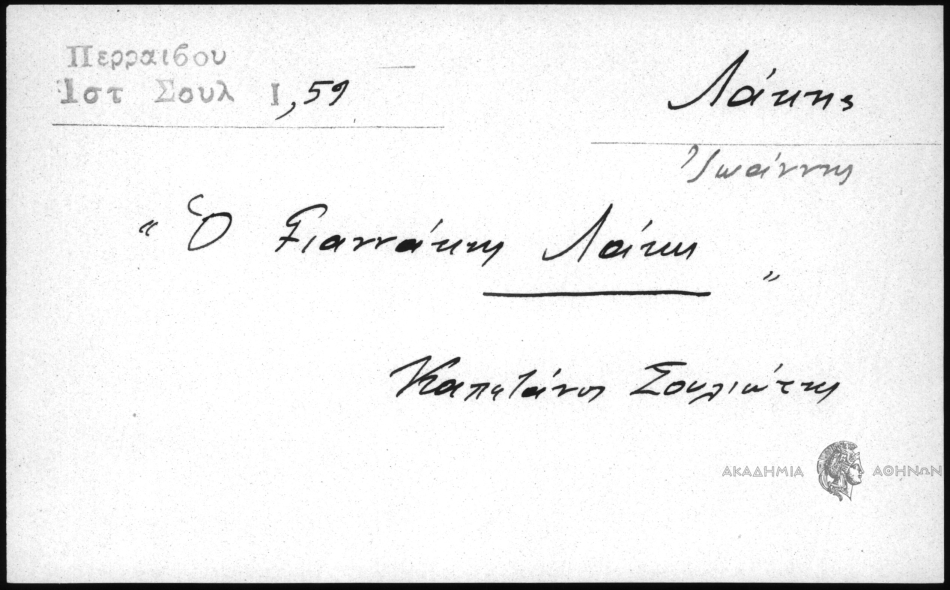 Περραιβου
Ιστ Σουλ Ι, 59
Λάκης
Ἰωάννης
"Ὁ Γιαννάκης Λάκης"
Καπετάνος Σουλιώτης
ΑΚΑΔΗΜΙΑ ΑΘΗΝΩΝ